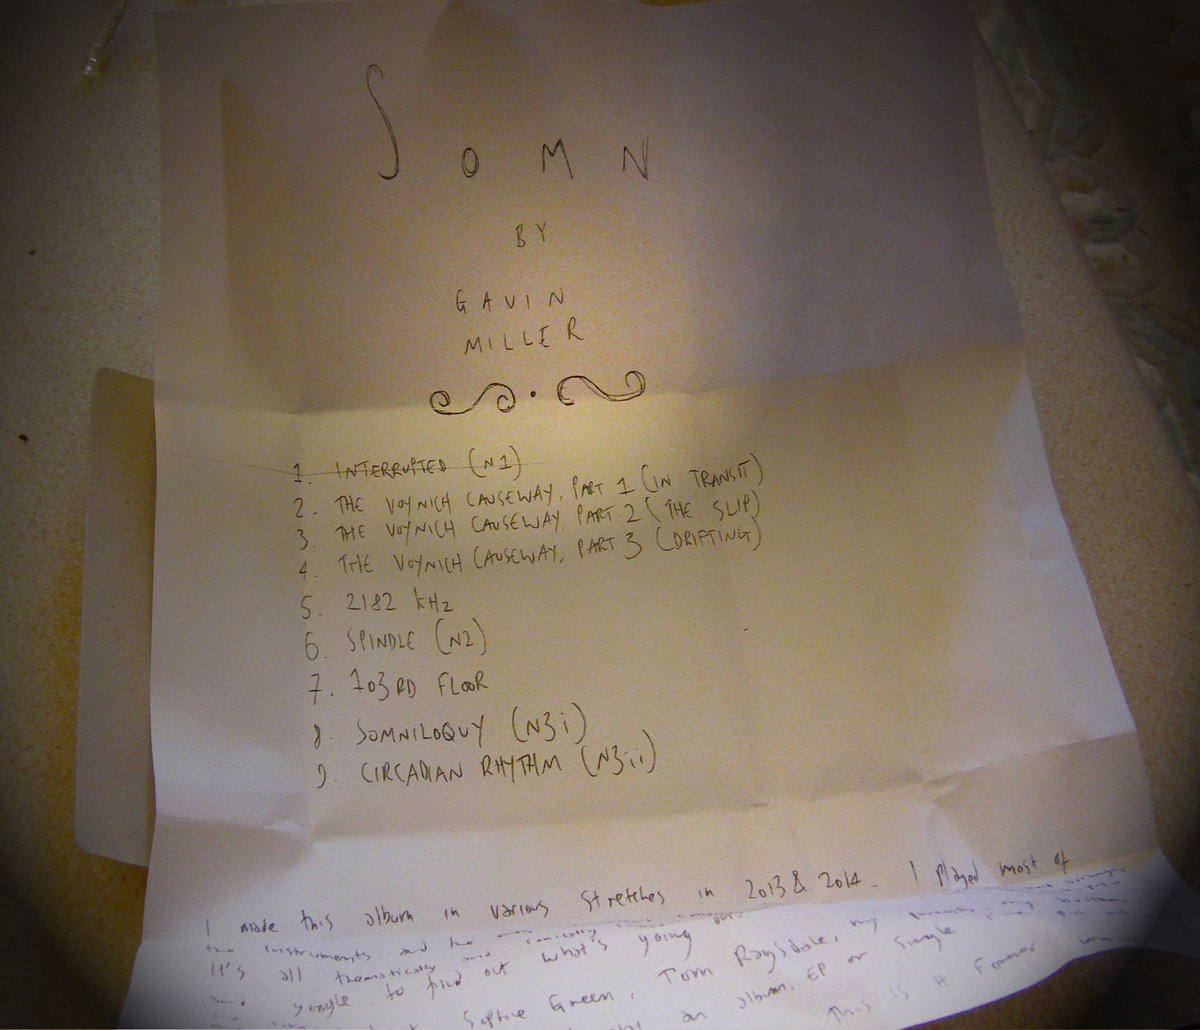 SOMN
BY
GAVIN
MILLER
1. INTERRUPTED (N1)
2. THE VOYNICH CAUSEWAY, PART 1 (IN TRANSIT)
3. THE VOYNICH CAUSEWAY, PART 2 (THE SLIP)
4. THE VOYNICH CAUSEWAY, PART 3 (DRIFTING)
5. 2182 kHz
6. SPINDLE (N2)
7. 703RD FLOOR
8. SOMNILOQUY (N3i)
9. CIRCADIAN RHYTHM (N3ii)
I made this album in various stretches in 2013 & 2014. I played most of
the instruments and the
It's all thematically and what's going on.
and google to find out
Sophie Green, Tom Ragsdale, my
an album, EP or single
This is it